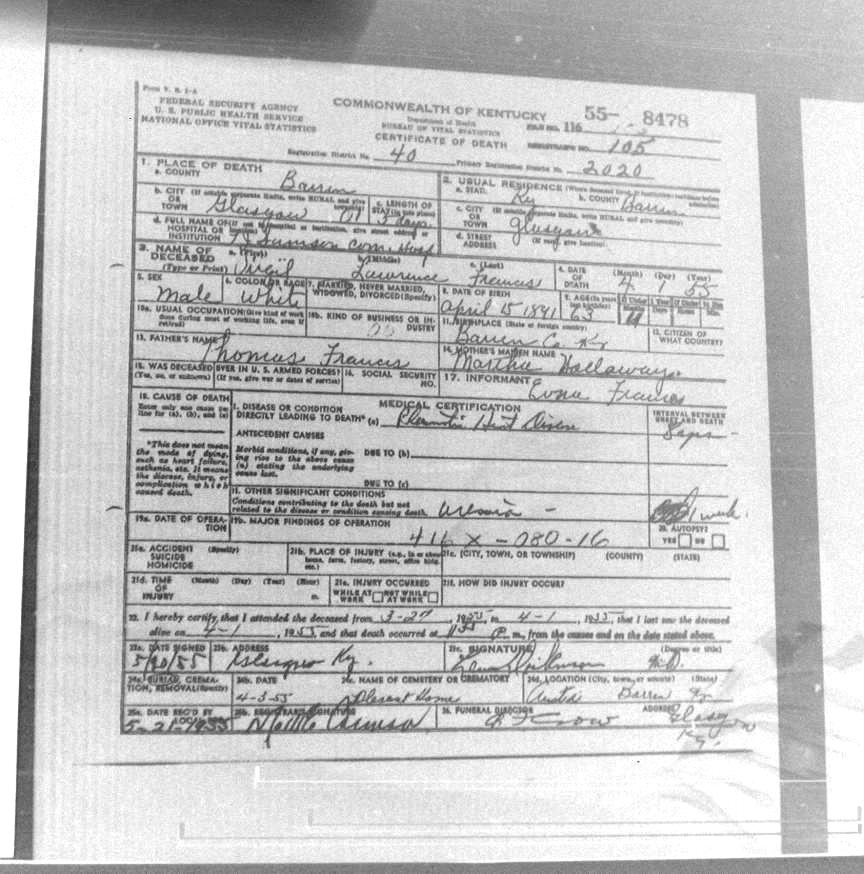 Form V. S. 1-A
FEDERAL SECURITY AGENCY
U. S. PUBLIC HEALTH SERVICE
NATIONAL OFFICE VITAL STATISTICS
COMMONWEALTH OF KENTUCKY
Department of Health
BUREAU OF VITAL STATISTICS
CERTIFICATE OF DEATH
55- 8478
FILE NO. 116
REGISTRAR'S NO. 105
Registration District No. 40
Primary Registration District No. 2020
1. PLACE OF DEATH
a. COUNTY Barren
2. USUAL RESIDENCE (Where deceased lived. If institution: residence before admission)
a. STATE Ky b. COUNTY Barren
b. CITY (If outside corporate limits, write RURAL and give township) OR TOWN Glasgow
c. LENGTH OF STAY (in this place) 5 days
c. CITY (If outside corporate limits, write RURAL and give township) OR TOWN Glasgow
d. FULL NAME OF (If not in hospital or institution, give street address or location) HOSPITAL OR INSTITUTION T J Samson Com. Hosp
d. STREET ADDRESS (If rural, give location)
3. NAME OF DECEASED (Type or Print)
a. (First) Virgil b. (Middle) Lawrence c. (Last) Francis
4. DATE OF DEATH (Month) (Day) (Year) 4 1 55
5. SEX Male
6. COLOR OR RACE White
7. MARRIED, NEVER MARRIED, WIDOWED, DIVORCED (Specify)
8. DATE OF BIRTH April 15 1891
9. AGE (In years last birthday) 63 If Under 1 Year Months 11 Days If Under 24 Hrs. Hours Min.
10a. USUAL OCCUPATION (Give kind of work done during most of working life, even if retired)
10b. KIND OF BUSINESS OR INDUSTRY
11. BIRTHPLACE (State or foreign country) Barren Co. Ky
12. CITIZEN OF WHAT COUNTRY?
13. FATHER'S NAME Thomas Francis
14. MOTHER'S MAIDEN NAME Martha Hallaway
15. WAS DECEASED EVER IN U. S. ARMED FORCES? (Yes, no, or unknown) (If yes, give war or dates of service)
16. SOCIAL SECURITY NO.
17. INFORMANT Francis
18. CAUSE OF DEATH
Enter only one cause per line for (a), (b), and (c)
MEDICAL CERTIFICATION
INTERVAL BETWEEN ONSET AND DEATH
I. DISEASE OR CONDITION DIRECTLY LEADING TO DEATH* (a) Rheumatic Heart Disease
*This does not mean the mode of dying, such as heart failure, asthenia, etc. It means the disease, injury, or complication which caused death.
ANTECEDENT CAUSES
Morbid conditions, if any, giving rise to the above cause (a) stating the underlying cause last.
DUE TO (b)
DUE TO (c)
II. OTHER SIGNIFICANT CONDITIONS
Conditions contributing to the death but not related to the disease or condition causing death. Uremia - 1 week.
19a. DATE OF OPERATION
19b. MAJOR FINDINGS OF OPERATION
416 X - 080-16
20. AUTOPSY? YES NO
21a. ACCIDENT SUICIDE HOMICIDE (Specify)
21b. PLACE OF INJURY (e.g., in or about home, farm, factory, street, office bldg. etc.)
21c. (CITY, TOWN, OR TOWNSHIP) (COUNTY) (STATE)
21d. TIME OF INJURY (Month) (Day) (Year) (Hour) m.
21e. INJURY OCCURRED WHILE AT WORK NOT WHILE AT WORK
21f. HOW DID INJURY OCCUR?
22. I hereby certify, that I attended the deceased from 3-27, 1955, to 4-1, 1955, that I last saw the deceased
alive on 4-1, 1955, and that death occurred at P. m., from the causes and on the date stated above.
23a. DATE SIGNED 5/20/55
23b. ADDRESS Glasgow Ky.
23c. SIGNATURE (Degree or title) M.D.
24a. BURIAL, CREMATION, REMOVAL (Specify)
24b. DATE 4-3-55
24c. NAME OF CEMETERY OR CREMATORY Pleasant Home
24d. LOCATION (City, town, or county) (State) Austin Barren Ky
25a. DATE REC'D BY LOCAL REG. 5-21-1955
25b. REGISTRAR'S SIGNATURE
26. FUNERAL DIRECTOR Crow
ADDRESS Glasgow Ky.